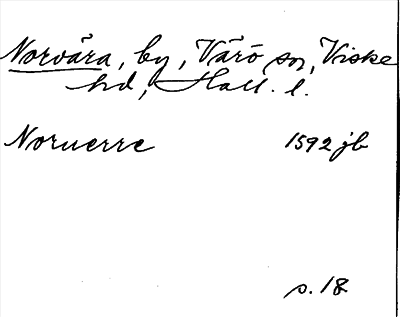 Norvära, by, Värö sn, Viske
hd, Hall. l.
Noruerre 1592 jb
s. 18